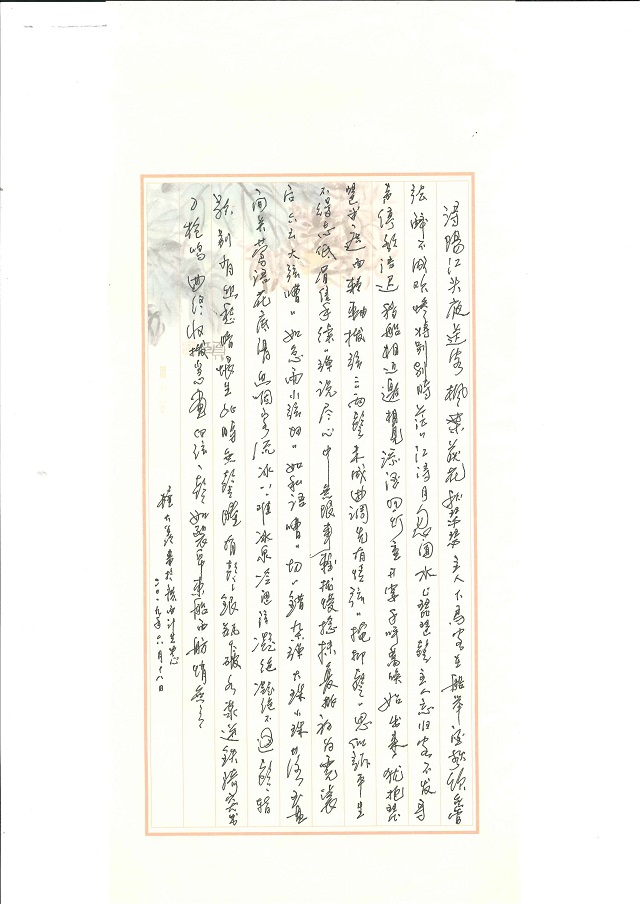 浔陽江头夜送客枫葉荻花秋瑟瑟主人下馬客在船举酒欲饮無管
弦醉不成欢惨将别别時茫〃江浸月忽闻水上琵琶聲主人忘归客不发寻
声停欲语迟移船相近邀相見添酒回灯重开宴千呼萬唤始出来犹抱琵
琶半遮面轉軸撥弦三两聲未成曲调先有情弦〃掩抑聲〃思似訴平生
不得志低眉信手续〃弹说尽心中無限事轻拢慢捻抹复挑初为霓裳
后六幺大弦嘈〃如急雨小弦切〃如私语嘈〃切〃错杂弹大珠小珠落玉盘
间关莺语花底滑幽咽泉流冰下难冰泉冷涩弦凝绝凝绝不通聲暂
歇别有幽愁暗恨生此時無聲勝有聲銀瓶乍破水漿迸铁骑突出
刀槍鳴曲终收撥当心画四弦一聲如裂帛東船西舫悄無言
二〇一九年六月十八日